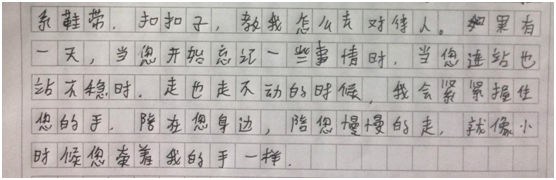 系鞋带．扣扣子，教我怎么去对待人。如果有
一天，当您开始忘记一些事情时．当您连站也
站不稳时．走也走不动的时候，我会紧紧握住
您的手．陪在您身边，陪您慢慢的走，就像小
时候您牵着我的手一样．